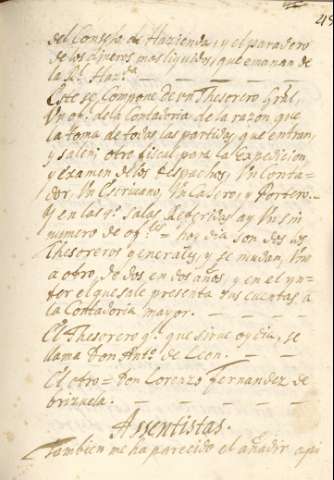 del Consejo de Hazienda, y el paradero
de los generos mas liquidos, que emanan de
la Rl. Hazda.
Este se Compone de vn Thesorero Grãl,
Vn ofl. de la Contaduria de la razon que
la toma de todas las partidas, que entran,
y salen; otro fiscal para la expedicion,
y examen de los despachos, Vn Conta-
dor, Vn Escriuano, Vn Caxero, y Portero.
y en las Salas Referidas ay Vn sin
numero de ofles = hoy dia son dos los
Thesoreros generales, y se mudan, Vno
a otro, de dos en dos años, y en el yn-
ter el que sale presenta sus cuentas a
la Contaduria mayor.
El Thesorero q.e sirue oy dia, se
llama Don Anto. de Leon.
El otro = Don Lorenzo fernandez de
brizuela.
Assentistas.
Tambien me ha parecido el añadir aqui